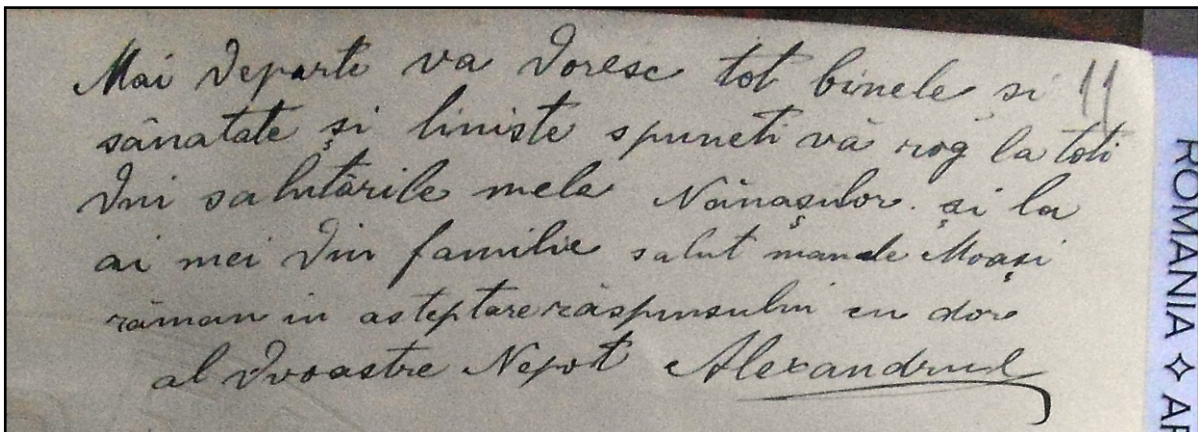 Mai departe va doresc tot binele si 11
sănatate și liniste spuneti vă rog la toti
salutările mele Nănașilor. și la
ai mei din familie salut mande Moași
răman in asteptare răspunsului cu dor
al Dvoastre Nepot Alexandrul
ROMANIA ✧ AR